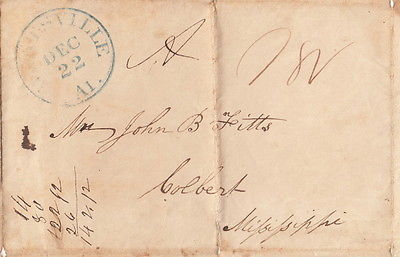 DEC
22
Al.
Mr John B Fitts
Colbert
Mississippi
14
80
122 12
26
142.12